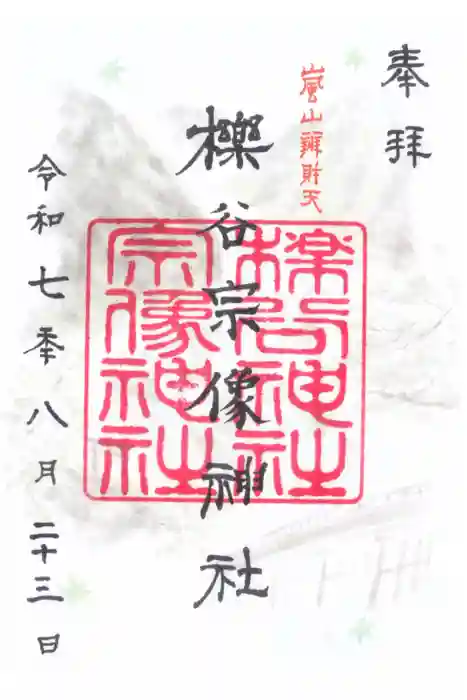 奉拝
嵐山辨財天
櫟谷宗像神社
櫟谷神社
宗像神社
令和七年八月二十三日